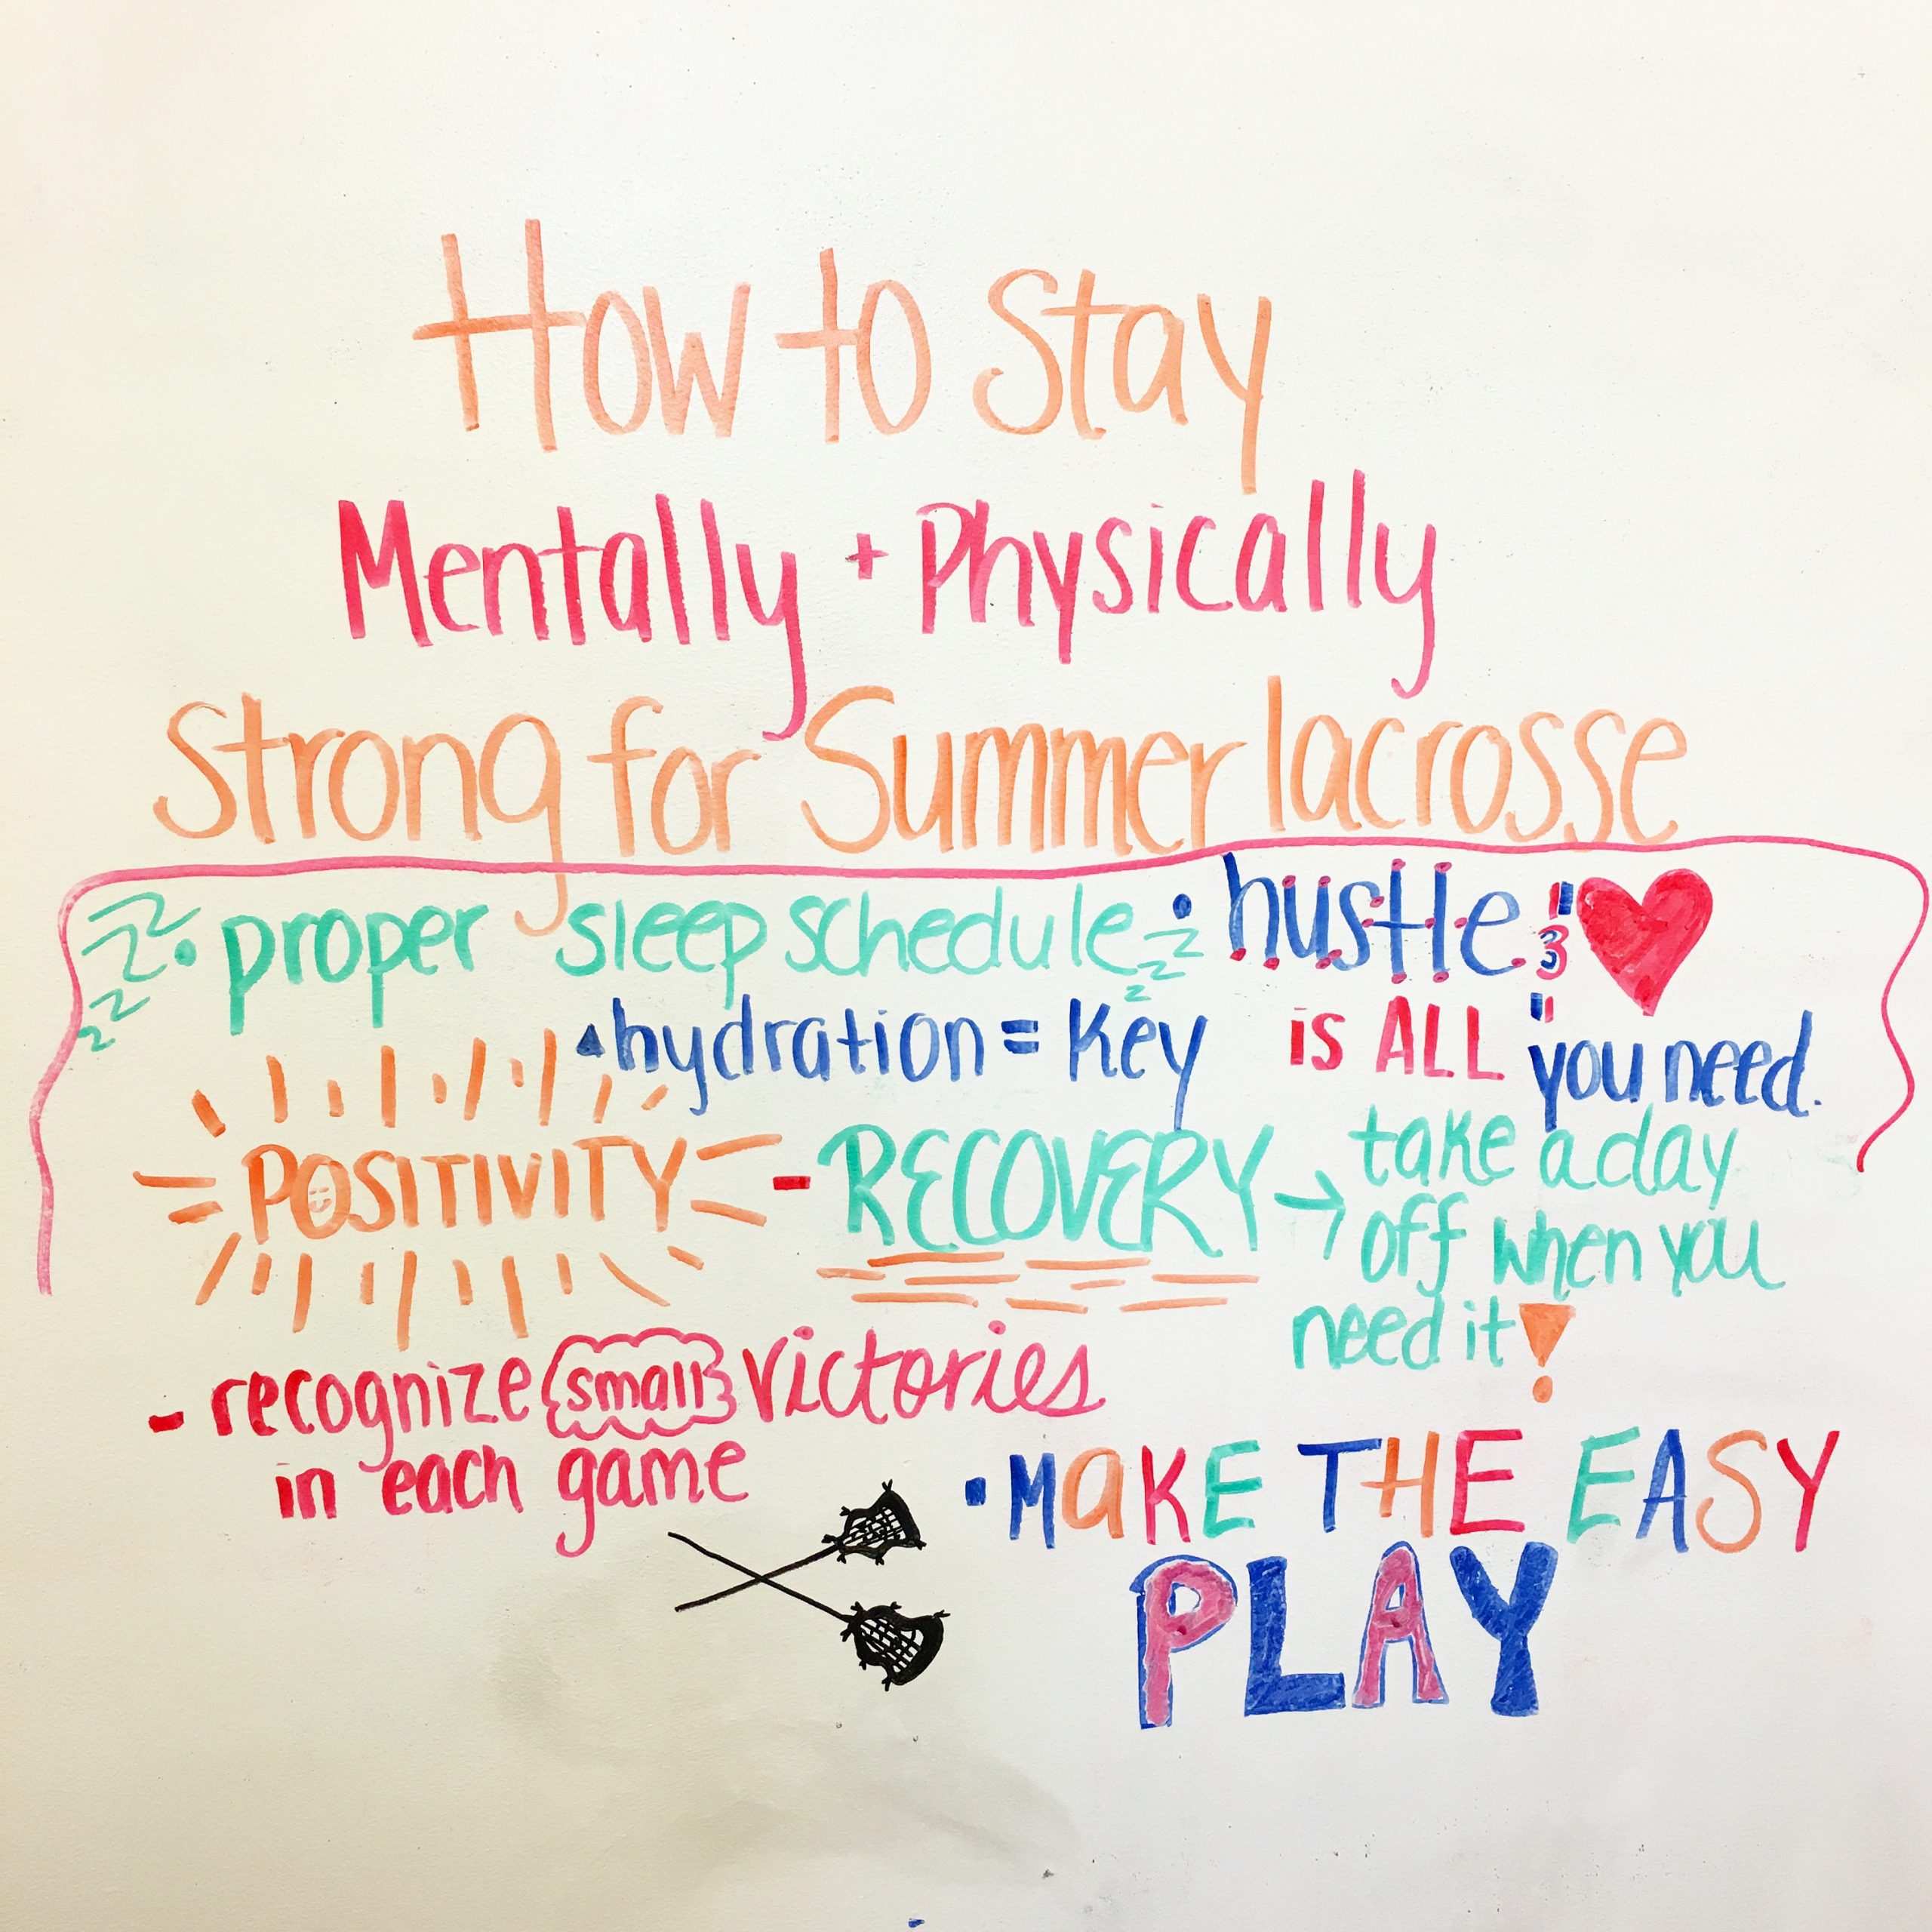 How to Stay
Mentally + Physically
Strong for Summer lacrosse
zzzz • proper sleep schedule zzz
• hustle & ♥
is ALL you need.
hydration = Key
POSITIVITY
- RECOVERY → take a day
off when you
need it!
- recognize small victories
in each game
• MaKE THE EASY
PLAY